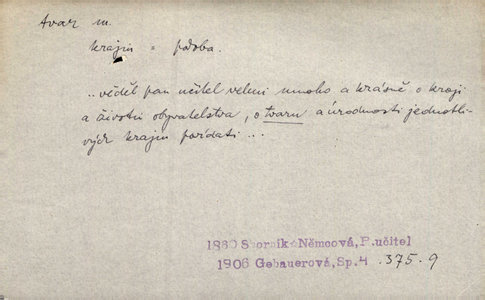 tvar m.
krajin = podoba.
.. věděl pan učitel velmi mnoho a krásně o kraji
a životu obyvatelstva, o tvaru a úrodnosti jednotli-
vých krajin povídati ...
1860 Sborník: Němcová, P. učitel
1906 Gebauerová, Sp. 4 .375.9